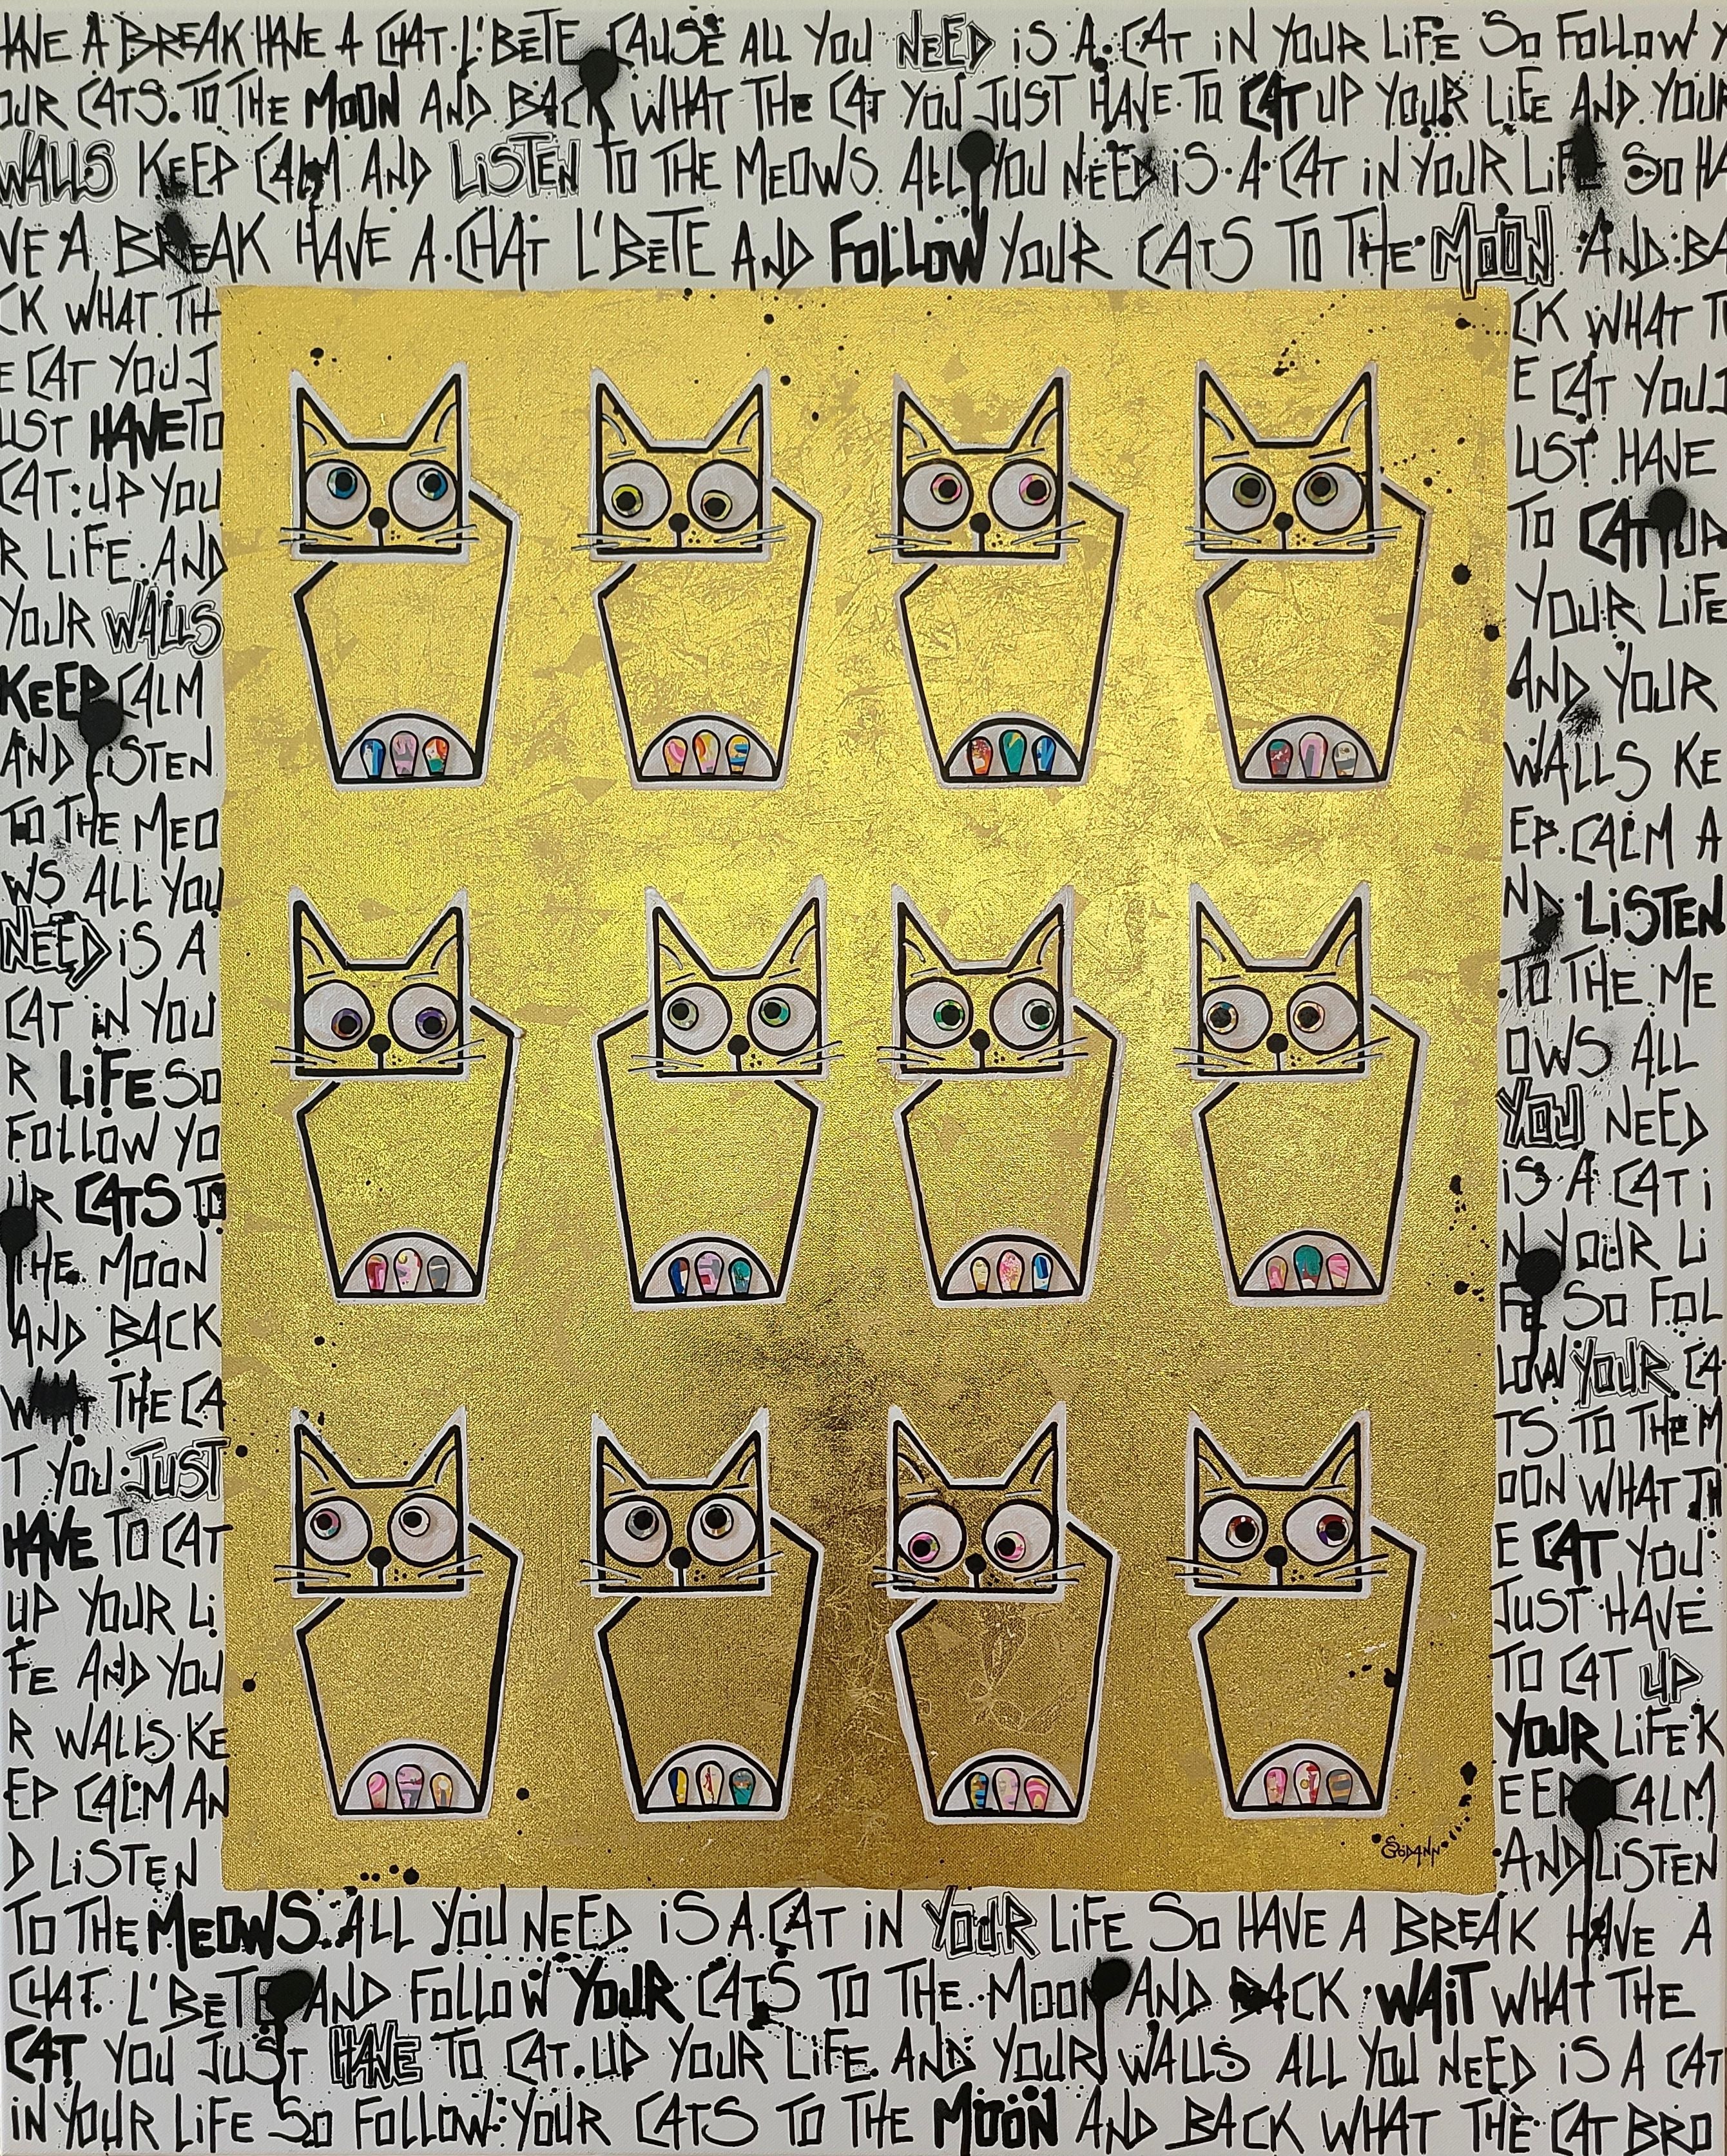 HAVE A BREAK HAVE A CHAT L'BÊTE CAUSE ALL YOU NEED iS A CAT iN YOUR LiFE SO FOLLOW Y
OUR CATS. TO THE MOON AND BACK WHAT THE CAT YOU JUST HAVE TO CAT UP YOUR LiFE AND YOUR
WALLS KEEP CALM AND LiSTEN TO THE MEOWS. ALL YOU NEED iS A CAT iN YOUR LiFE SO HA
VE A BREAK HAVE A CHAT L'BÊTE AND FOLLOW YOUR CATS TO THE MOON AND BA
CK WHAT TH
E CAT YOU J
UST HAVE TO
CAT UP YOU
R LiFE AND
YOUR WALLS
KEEP CALM
AND LiSTEN
TO THE MEO
WS ALL YOU
NEED iS A
CAT iN YOU
R LiFE SO
FOLLOW YO
UR CATS TO
THE MOON
AND BACK
WHAT THE CA
T YOU JUST
HAVE TO CAT
UP YOUR Li
FE AND YOU
R WALLS KE
EP CALM AN
D LiSTEN
CK WHAT TH
E CAT YOU J
UST HAVE
TO CAT UP
YOUR LiFE
AND YOUR
WALLS KE
EP CALM A
ND LiSTEN
TO THE ME
OWS ALL
YOU NEED
iS A CAT i
N YOUR Li
FE SO FOL
LOW YOUR CA
TS TO THE M
OON WHAT TH
E CAT YOU
JUST HAVE
TO CAT UP
YOUR LiFE K
EEP CALM
AND LiSTEN
SODANN
TO THE MEOWS. ALL YOU NEED iS A CAT iN YOUR LiFE SO HAVE A BREAK HAVE A
CHAT L'BÊTE AND FOLLOW YOUR CATS TO THE MOON AND BACK WAiT WHAT THE
CAT YOU JUST HAVE TO CAT UP YOUR LiFE AND YOUR WALLS ALL YOU NEED iS A CAT
iN YOUR LiFE SO FOLLOW YOUR CATS TO THE MOON AND BACK WHAT THE CAT BRO